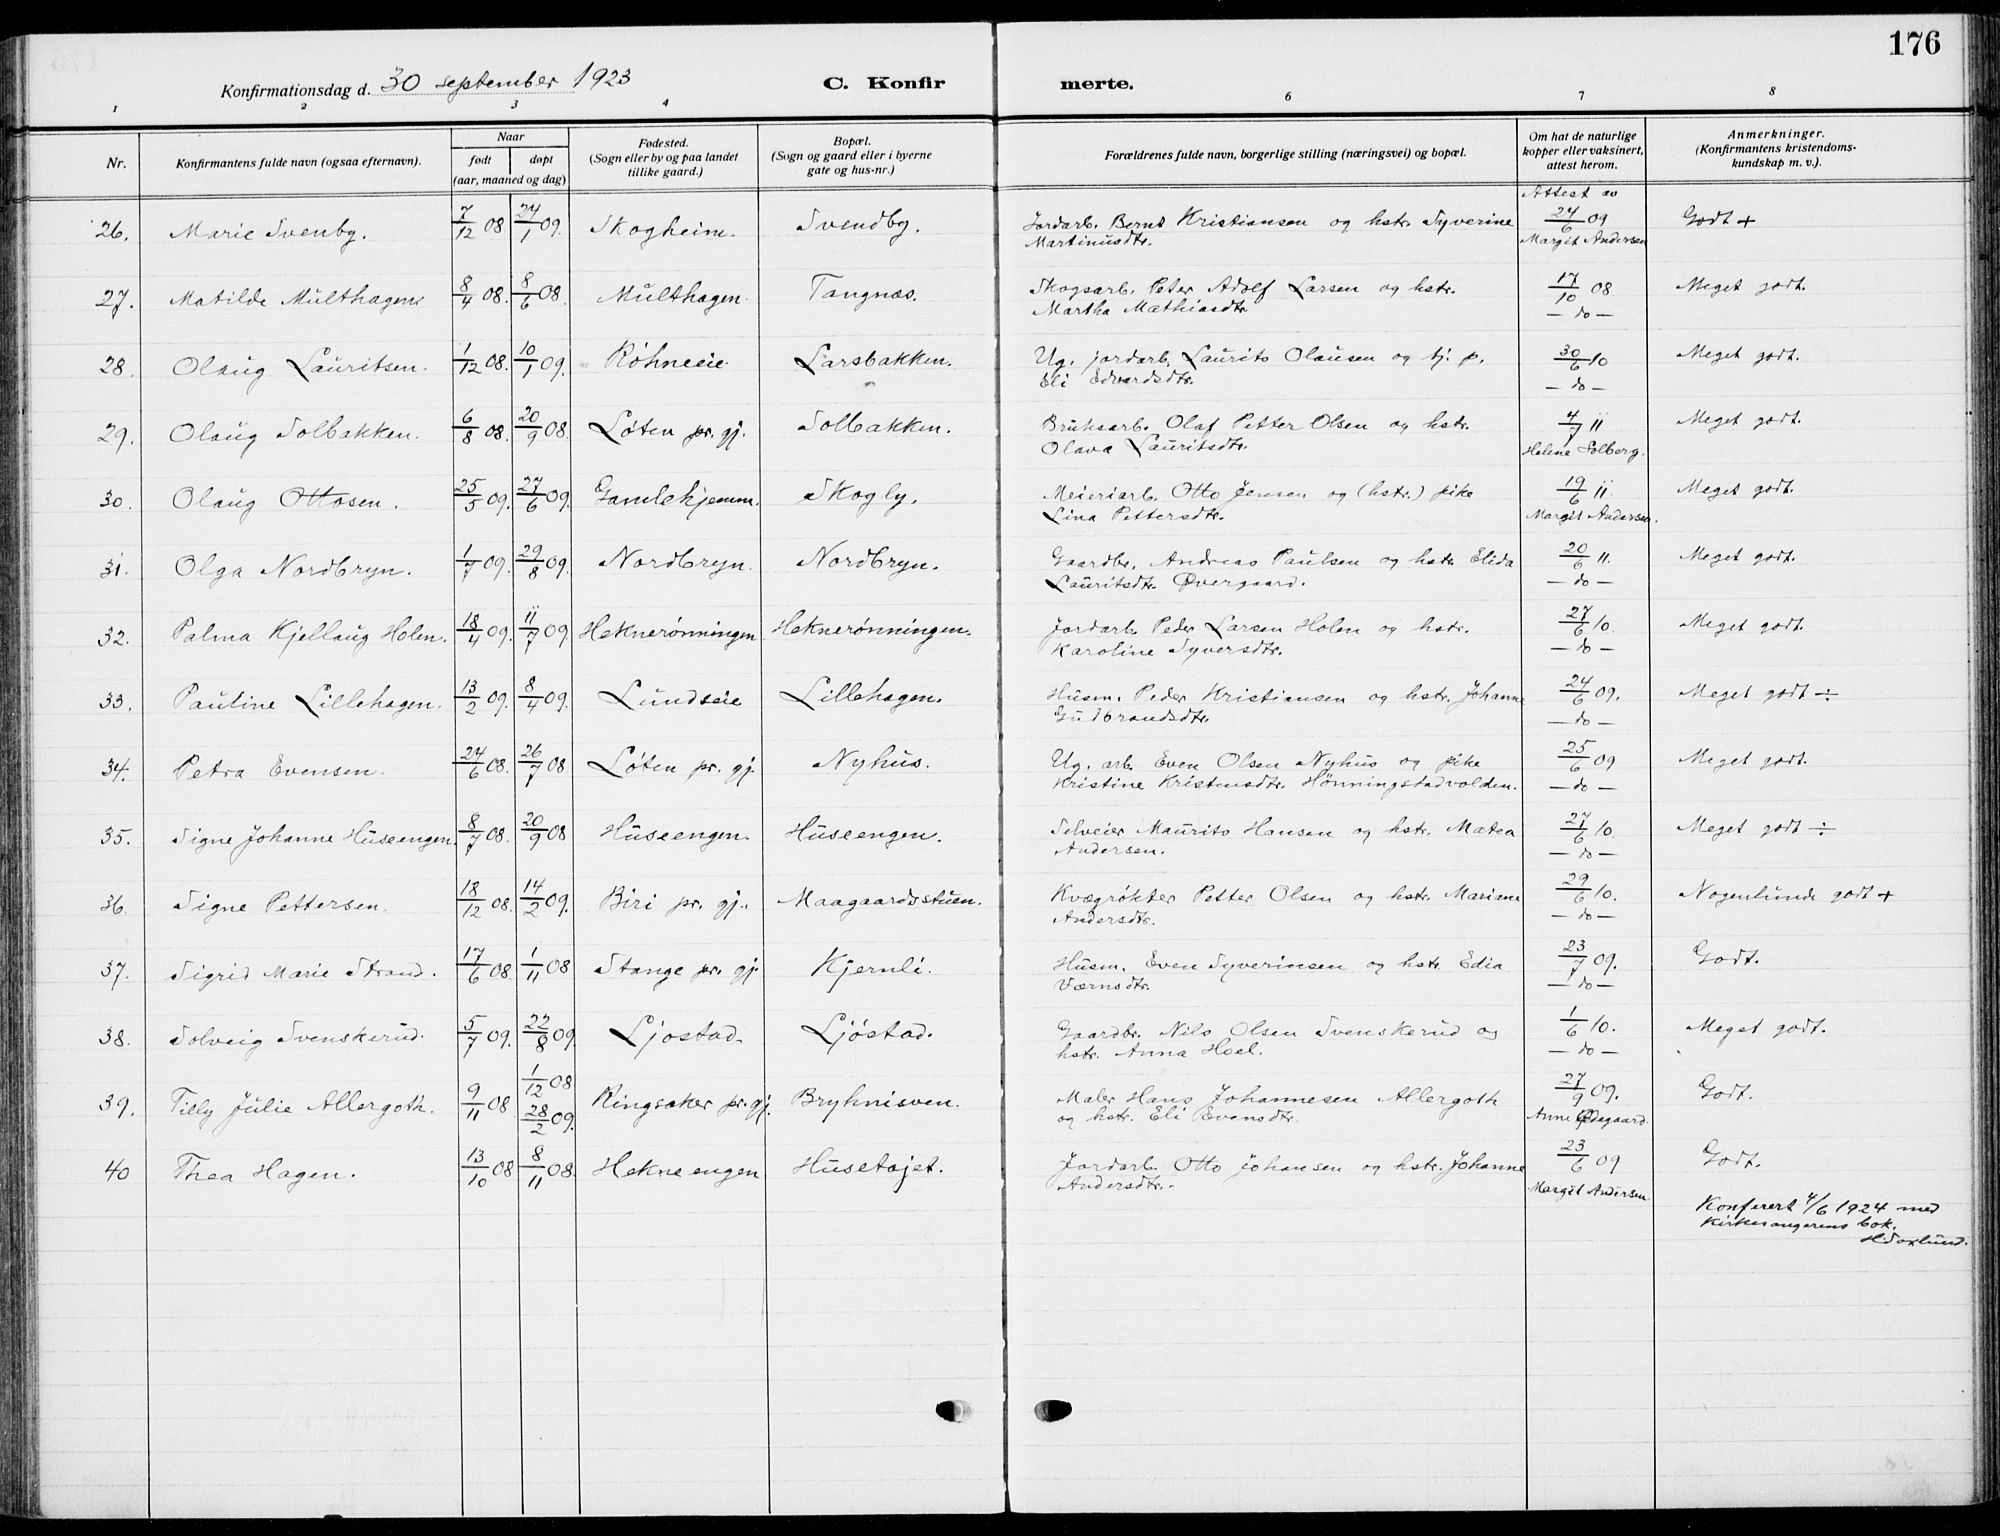 176
Konfirmationsdag d. 30 september 1923
C. Konfirmerte.
1 2 3 4 6 7 8
Nr.
Konfirmantens fulde navn (ogsaa efternavn).
Naar
født døpt
(aar, maaned og dag)
Fødested.
(Sogn eller by og paa landet
tillike gaard.)
Bopæl.
(Sogn og gaard eller i byerne
gate og hus-nr.)
Forældrenes fulde navn, borgerlige stilling (næringsvei) og bopæl.
Om hat de naturlige
kopper eller vaksinert,
attest herom.
Anmerkninger.
(Konfirmantens kristendoms-
kundskap m. v.).
Attest av
26. Marie Svenby. 7/12 08 24/1 09. Skogheim. Svendby. Jordarb. Bernt Kristiansen og hstr. Syverine 24/6 09 Godt +
Martinusdtr. Margit Andersen
27. Matilde Multhagen 8/4 08. 8/6 08. Multhagen. Tangnæs. Skogsarb. Peter Adolf Larsen og hstr. 17/10 08 Meget godt.
Martha Mathiasdtr. — do —
28. Olaug Lauritsen. 1/12 08. 10/1 09. Røhneeie Larsbakken. Ug. jordarb. Laurits Olausen og tj. p. 30/6 10 Meget godt.
Eli Edvardsdtr. — do —
29. Olaug Solbakken. 6/8 08. 20/9 08. Løten pr. gj. Solbakken. Bruksarb. Olaf Petter Olsen og hstr. 4/7 11 Meget godt.
Olava Lauritsdtr. Helene Solberg.
30. Olaug Ottosen. 25/5 09. 27/6 09. Gamlehjemm. Skogly. Meieriarb. Otto Jensen og (hstr.) pike 19/6 11. Meget godt.
Lina Pettersdtr. Margit Andersen.
31. Olga Nordbryn. 1/7 09. 29/8 09. Nordbryn. Nordbryn. Gaardbr. Andreas Paulsen og hstr. Elida 20/6 11. Meget godt.
Lauritsdtr. Øvergaard. — do —
32. Palma Kjellaug Holen. 18/4 09. 11/7 09. Heknerønningen Heknerønningen. Jordarb. Peder Larsen Holen og hstr. 27/6 10. Meget godt.
Karoline Syversdtr. — do —
33. Pauline Lillehagen. 13/2 09. 8/4 09. Lundseie Lillehagen. Husm. Peder Kristiansen og hstr. Johanne 24/6 09. Meget godt ÷
Gudbrandsdtr. — do —
34. Petra Evensen. 24/6 08. 26/7 08 Løten pr. gj. Nyhus. Ug. arb. Even Olsen Nyhus og pike 25/6 09 Meget godt.
Kristine Kristensdtr. Hønningstadvolden. — do —
35. Signe Johanne Huseengen. 8/7 08. 20/9 08 Huseengen. Huseengen. Selveier Maurits Hansen og hstr. Matea 27/6 10. Meget godt ÷
Andersen. — do —
36. Signe Pettersen. 18/12 08. 14/2 09. Biri pr. gj. Maagaardsstuen. Kvægrøkter Petter Olsen og hstr. Mariane 29/6 10. Nogenlunde godt +
Andersdtr. — do —
37. Sigrid Marie Strand. 17/6 08. 1/11 08 Stange pr. gj. Kjernli. Husm. Even Syverinsen og hstr. Edia 23/7 09. Godt.
Værnsdtr. — do —
38. Solveig Svenskerud. 5/7 09. 22/8 09. Ljøstad. Ljøstad. Gaardbr. Nils Olsen Svenskerud og 1/6 10. Meget godt.
hstr. Anna Hoel. — do —
39. Tilly Julie Allergoth. 9/11 08. 1/12 08 28/2 09. Ringsaker pr. gj. Bryhnisven. Maler Hans Johannesen Allergoth 27/9 09. Godt.
og hstr. Eli Evensdtr. Anne Ødegaard.
40 Thea Hagen. 13/10 08 8/11 08. Hekneengen Husetøjet. Jordarb. Otto Johansen og hstr. Johanne 23/6 09 Godt.
Andersdtr. Margit Andersen
Konferert 4/6 1924 med
Kirkesangerens bok.